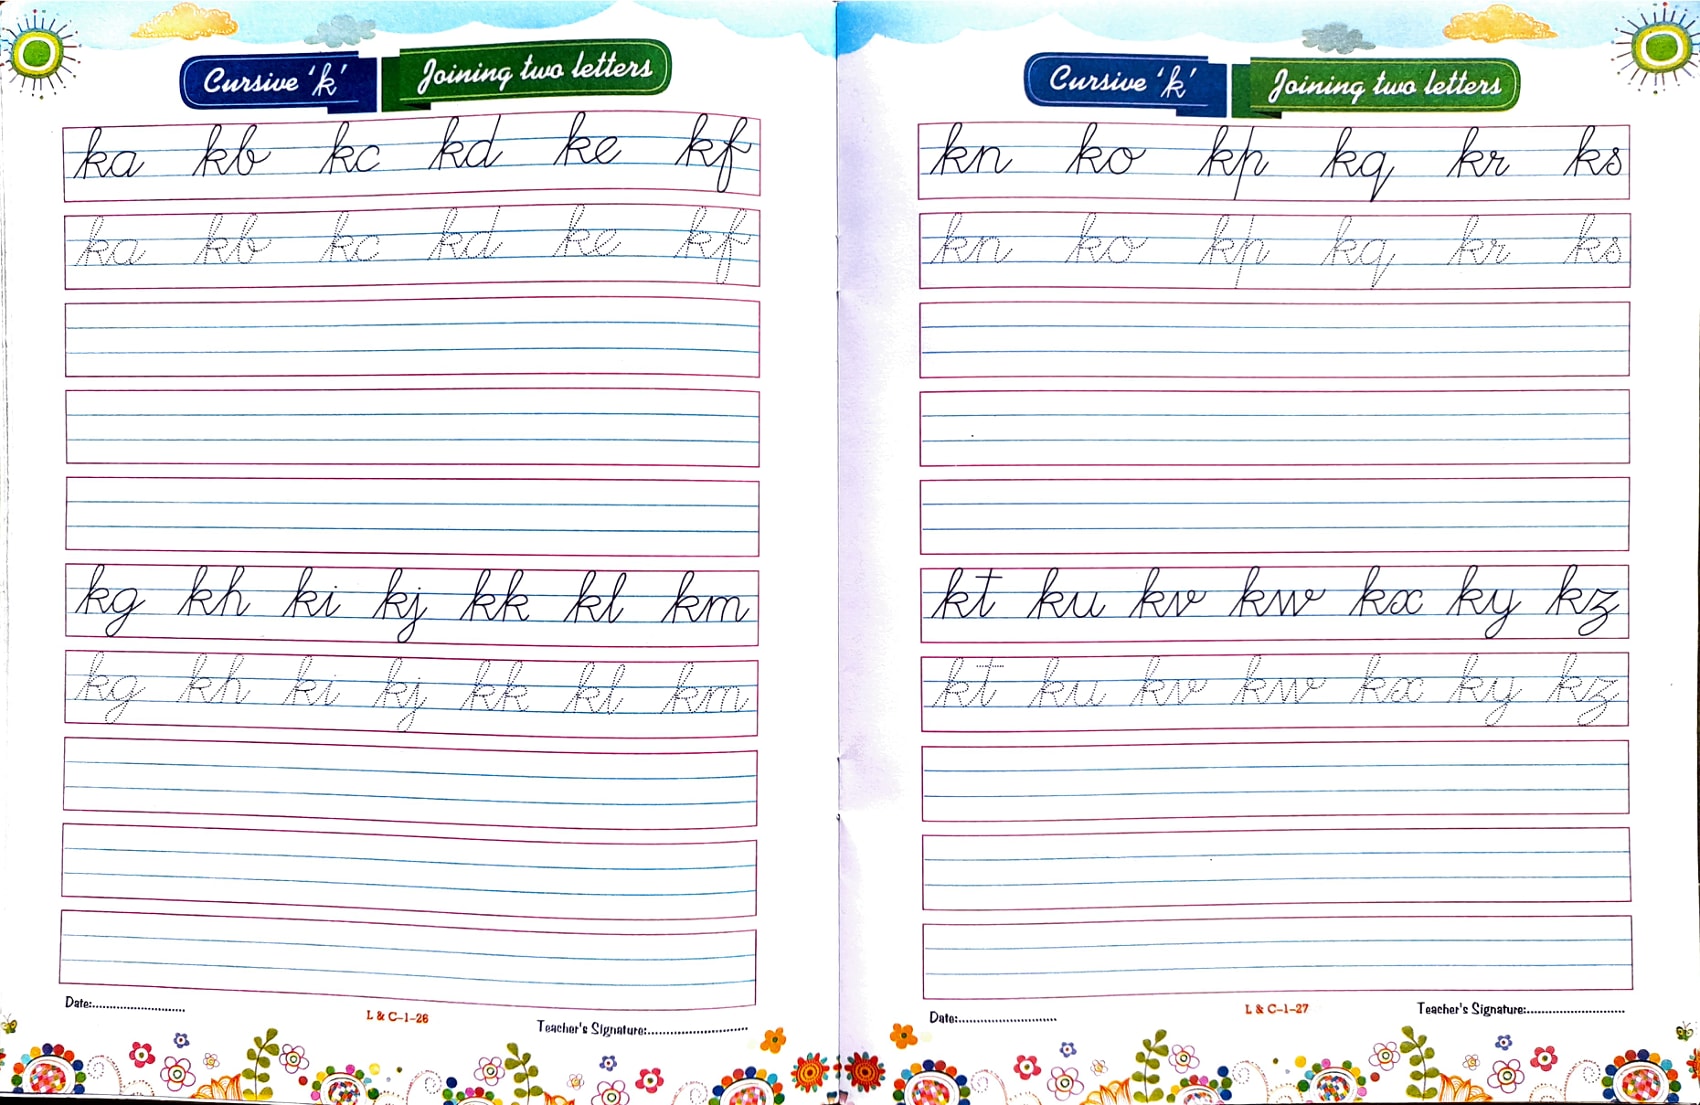 Cursive 'k' Joining two letters
ka kb kc kd ke kf
ka kb kc kd ke kf
kg kh ki kj kk kl km
kg kh ki kj kk kl km
Date:..............................
L & C-1-26
Teacher's Signature:..............................
Cursive 'k' Joining two letters
kn ko kp kq kr ks
kn ko kp kq kr ks
kt ku kv kw kx ky kz
kt ku kv kw kx ky kz
Date:..............................
L & C-1-27
Teacher's Signature:..............................